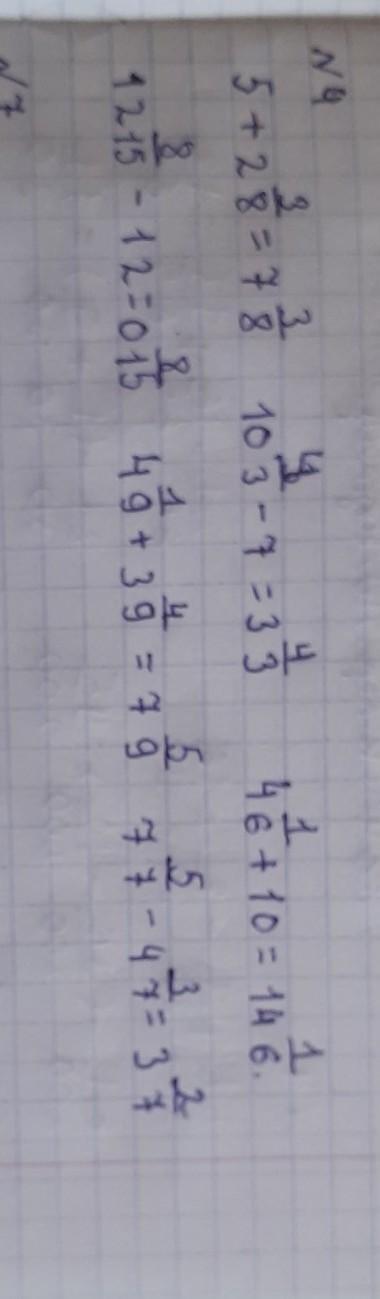 N4
5 + 2 3/8 = 7 3/8 10 4/3 - 7 = 3 4/3 4 1/6 + 10 = 14 1/6.
12 8/15 - 12 = 0 8/15 4 1/9 + 3 4/9 = 7 5/9 7 5/7 - 4 3/7 = 3 2/7
N7